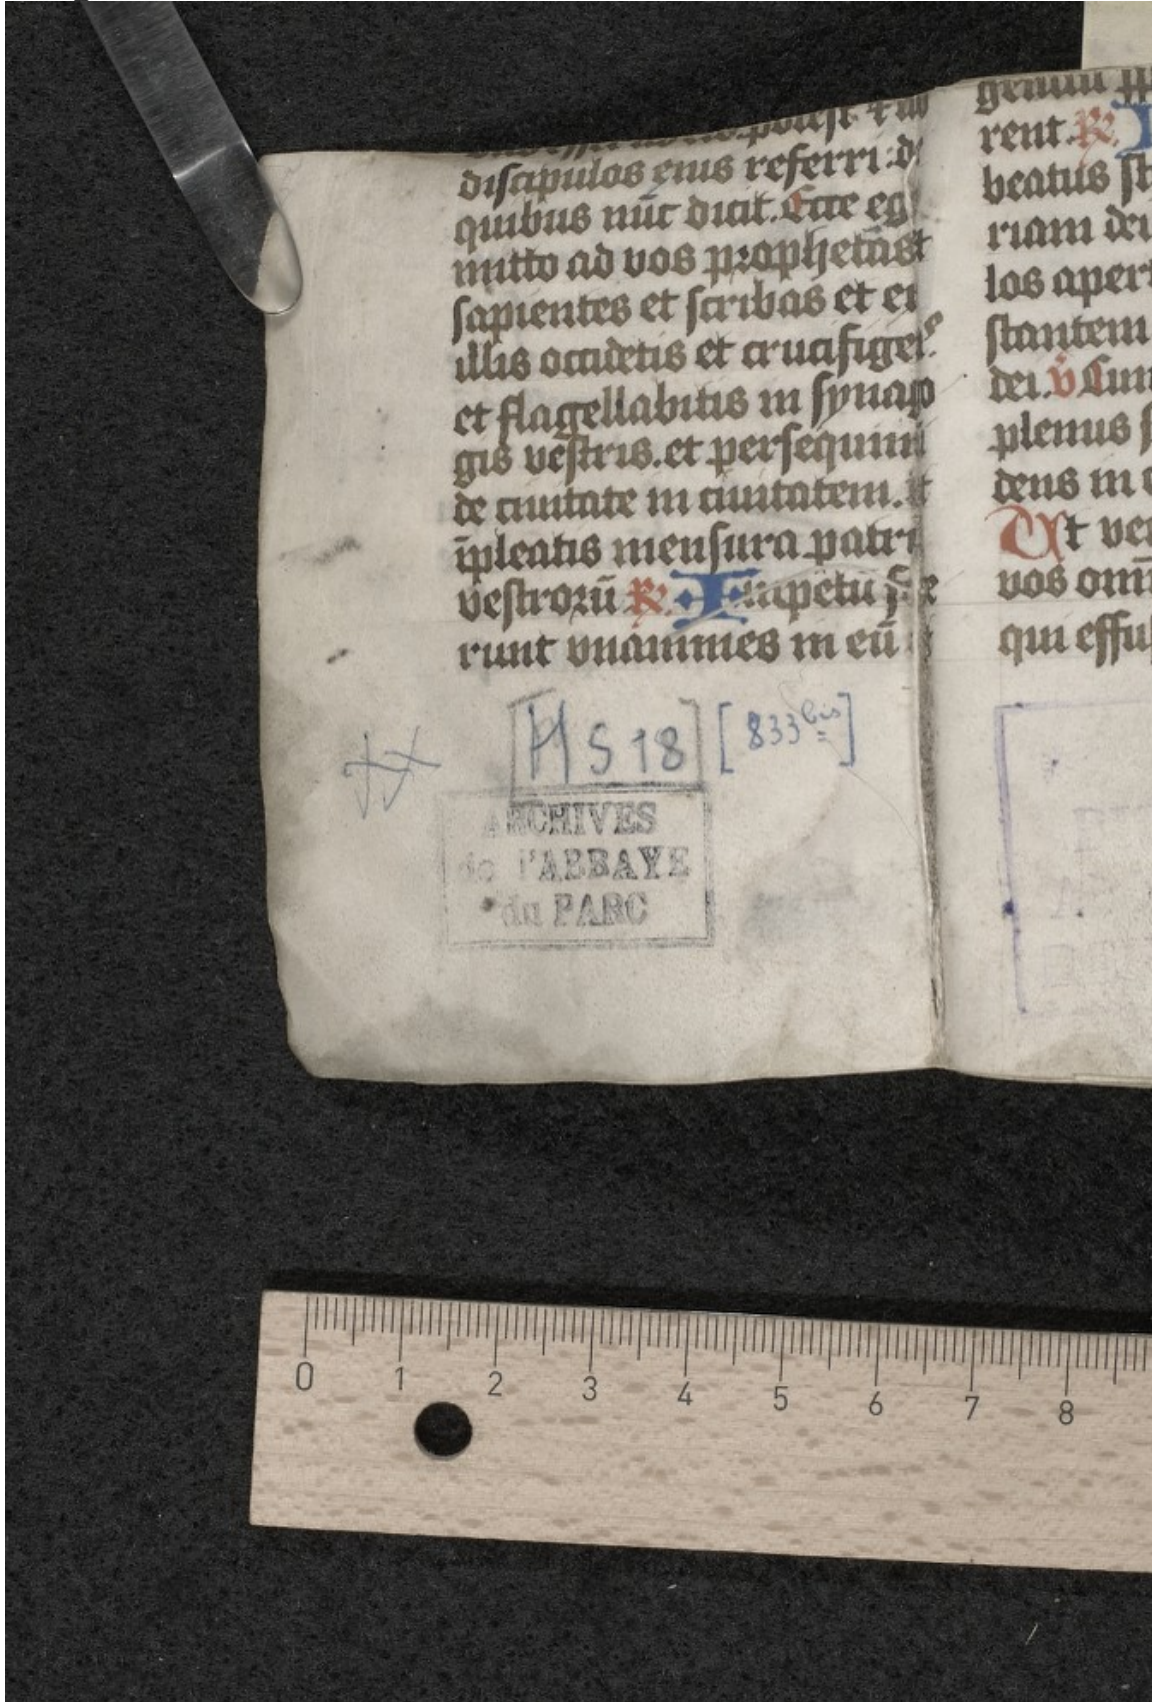 potest
discipulos eius referri: d
quibus nūc dicit. Ecce eg
mitto ad vos prophetas
sapientes et scribas et ex
illis occidetis et crucifiget
et flagellabitis in synago
gis vestris. et persequimi
de ciuitate in ciuitatem. ut
īpleatis mensura patrū
vestrorū R. Impetū fece
runt vnanimes in eū
[HS 18] [833bis]
ARCHIVES
de l'ABBAYE
du PARC
rent. R. I
beatus st
riam dei
los apert
stantem
dei. v Cum
plenus s
dens in c
Vt ver
vos omn
qui effus
0 1 2 3 4 5 6 7 8